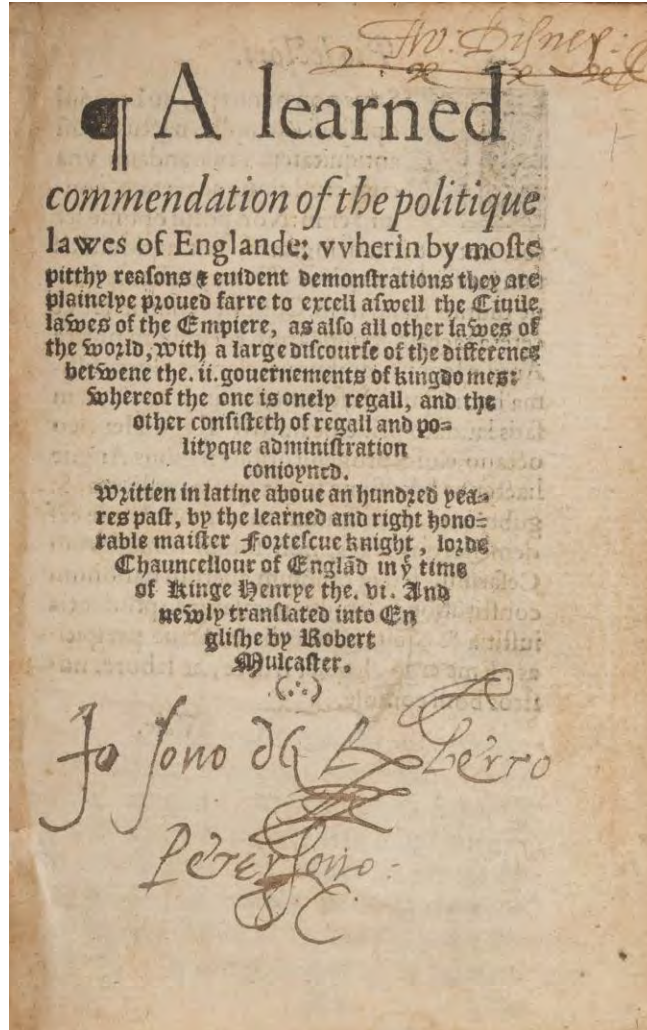 Tho: Disney:
¶ A learned
commendation of the politique
lawes of Englande: vvherin by moſte
pitthy reaſons & euident demonſtrations they are
plainelye proued farre to excell aſwell the Ciuile
lawes of the Empiere, as alſo all other lawes of
the world, with a large diſcourſe of the difference
betwene the. ii. gouernements of kingdomes:
whereof the one is onely regall, and the
other conſiſteth of regall and po=
lityque adminiſtration
conioyned.
Written in latine aboue an hundred yea=
res paſt, by the learned and right hono=
rable maiſter Forteſcue knight, lorde
Chauncellour of Englād in yͤ time
of Kinge Henrye the. vi. And
newly tranſlated into En
gliſhe by Robert
Mulcaſter.
(∴)
Jo ſono